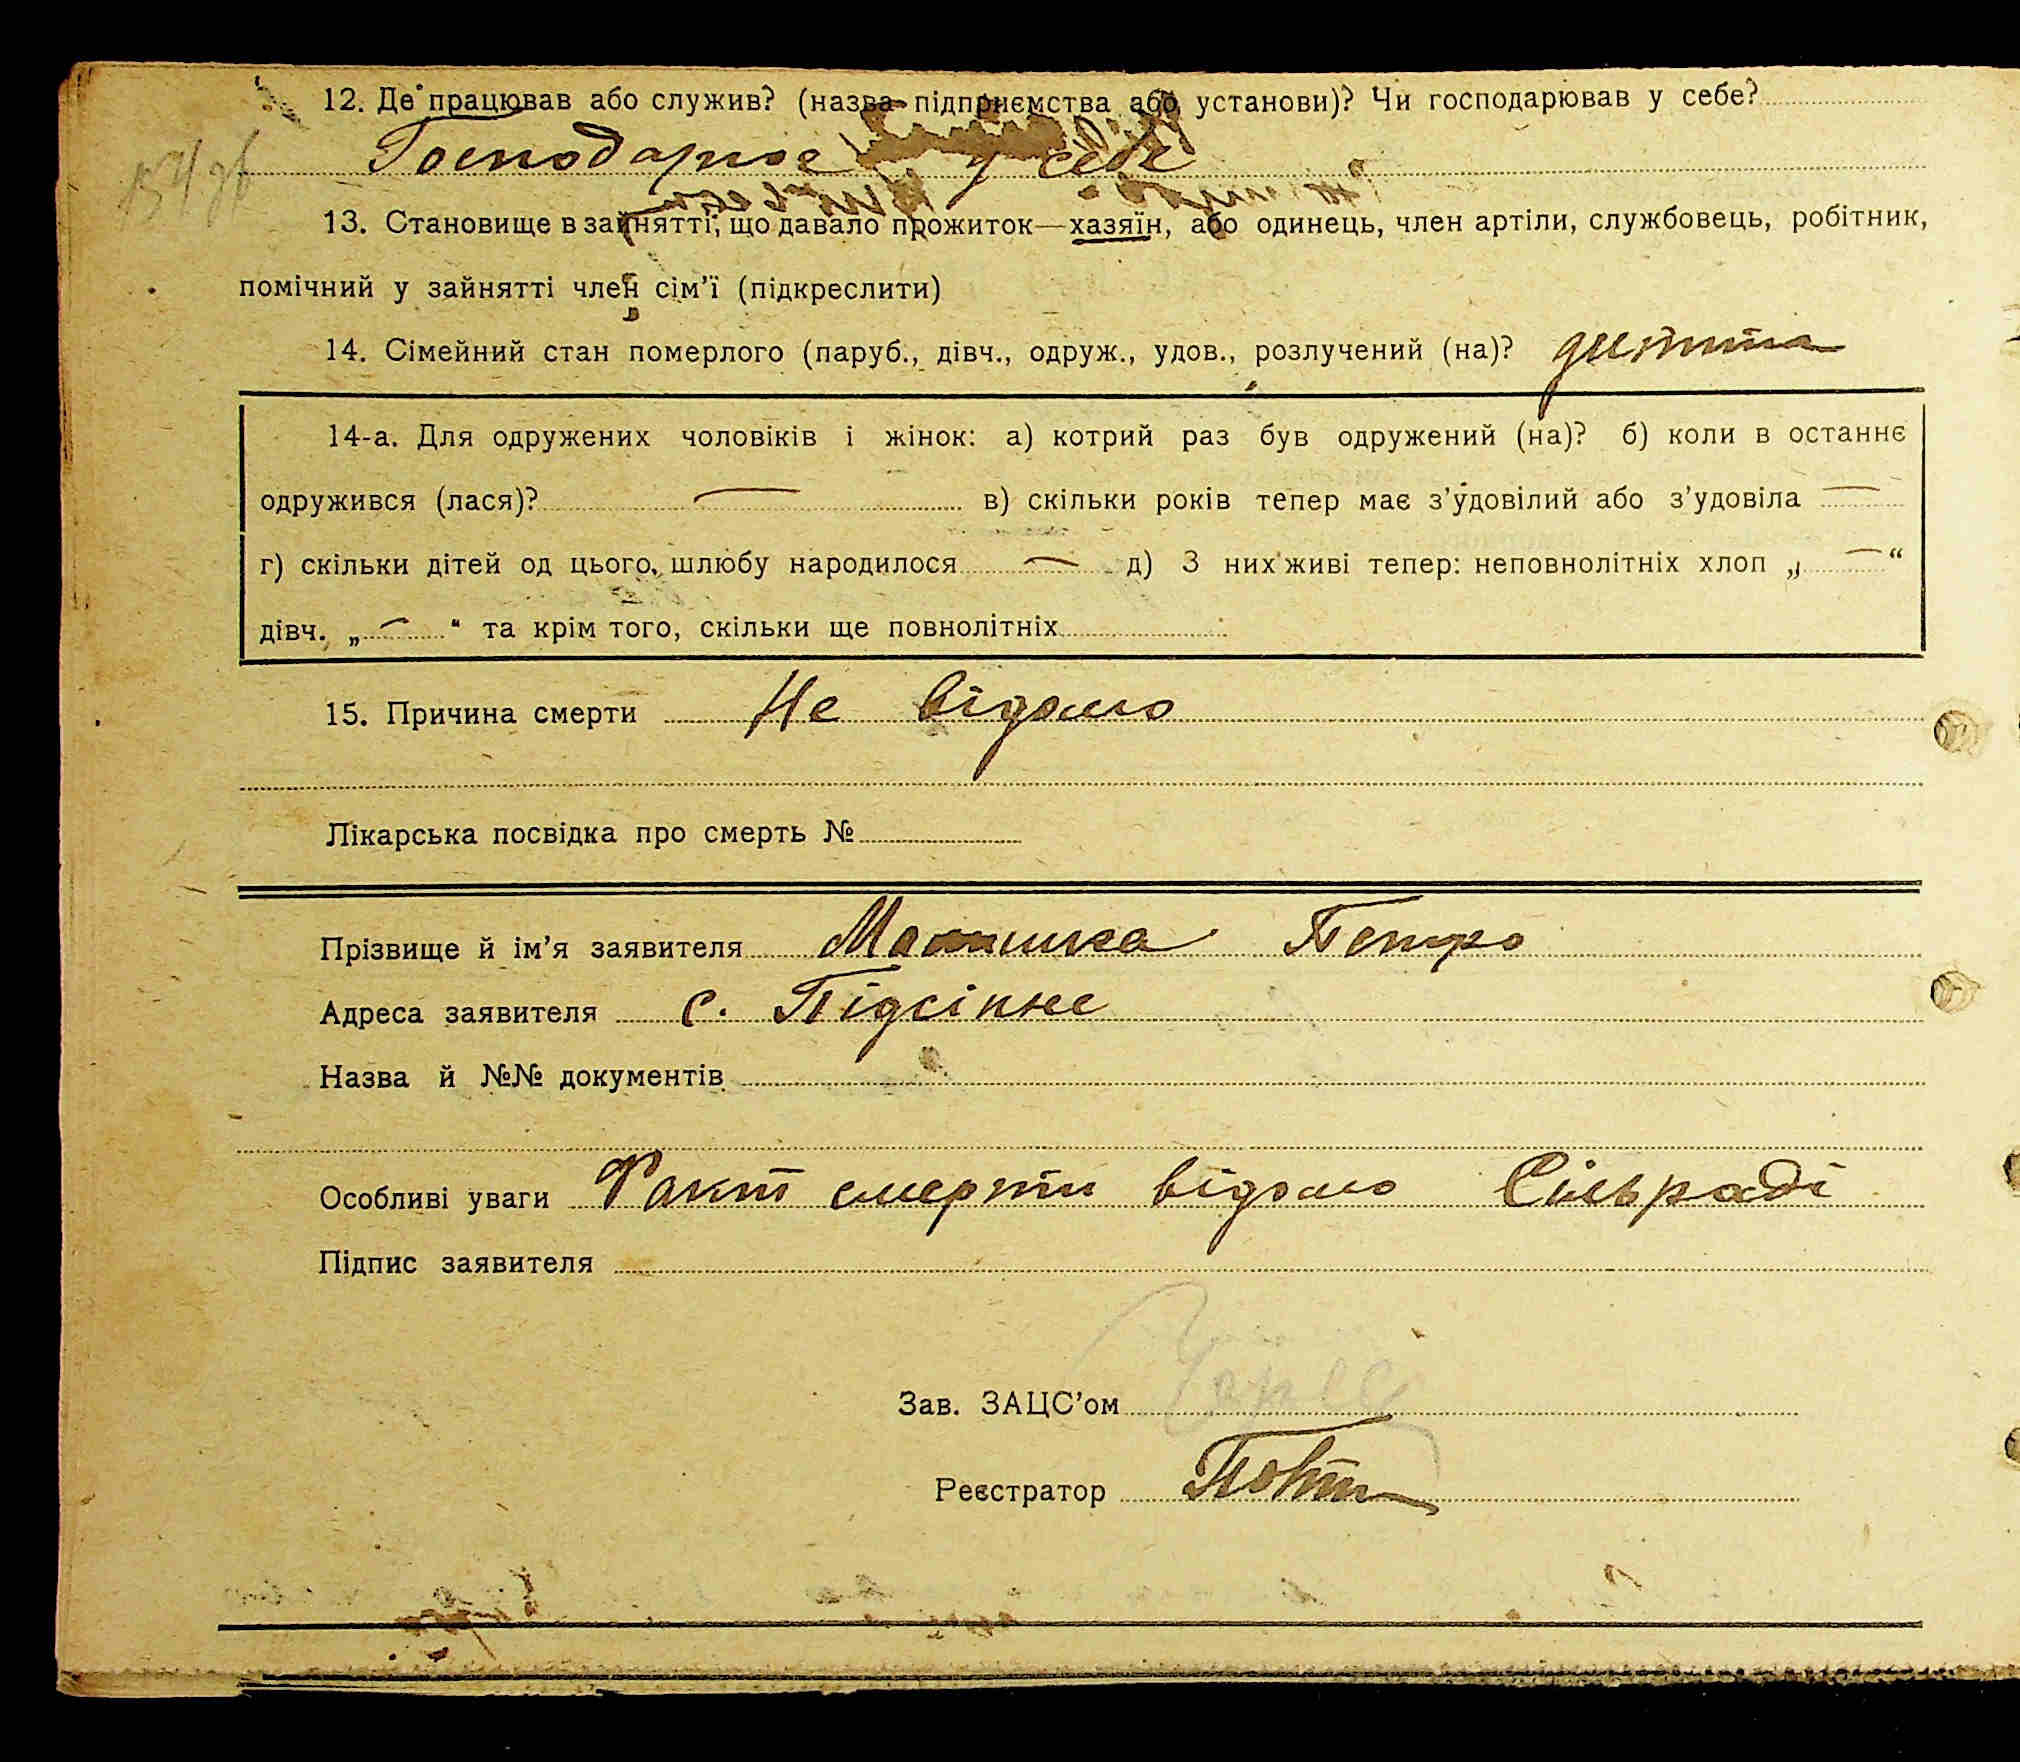 12. Де працював або служив? (назва підприємства або установи)? Чи господарював у себе?
Господарює у себе
13. Становище в зайнятті, що давало прожиток—хазяїн, або одинець, член артіли, службовець, робітник,
помічний у зайнятті член сім'ї (підкреслити)
14. Сімейний стан померлого (паруб., дівч., одруж., удов., розлучений (на)? дитина
14-а. Для одружених чоловіків і жінок: а) котрий раз був одружений (на)? б) коли в останнє
одружився (лася)? — в) скільки років тепер має з'удовілий або з'удовіла —
г) скільки дітей од цього шлюбу народилося — д) З них живі тепер: неповнолітніх хлоп „ — “
дівч. „ — “ та крім того, скільки ще повнолітніх
15. Причина смерти Не відомо
Лікарська посвідка про смерть №
Прізвище й ім'я заявителя Петро
Адреса заявителя с. Підсіпне
Назва й №№ документів
Особливі уваги Факт смерти відомо Сільраді
Підпис заявителя
Зав. ЗАЦС'ом
Реєстратор